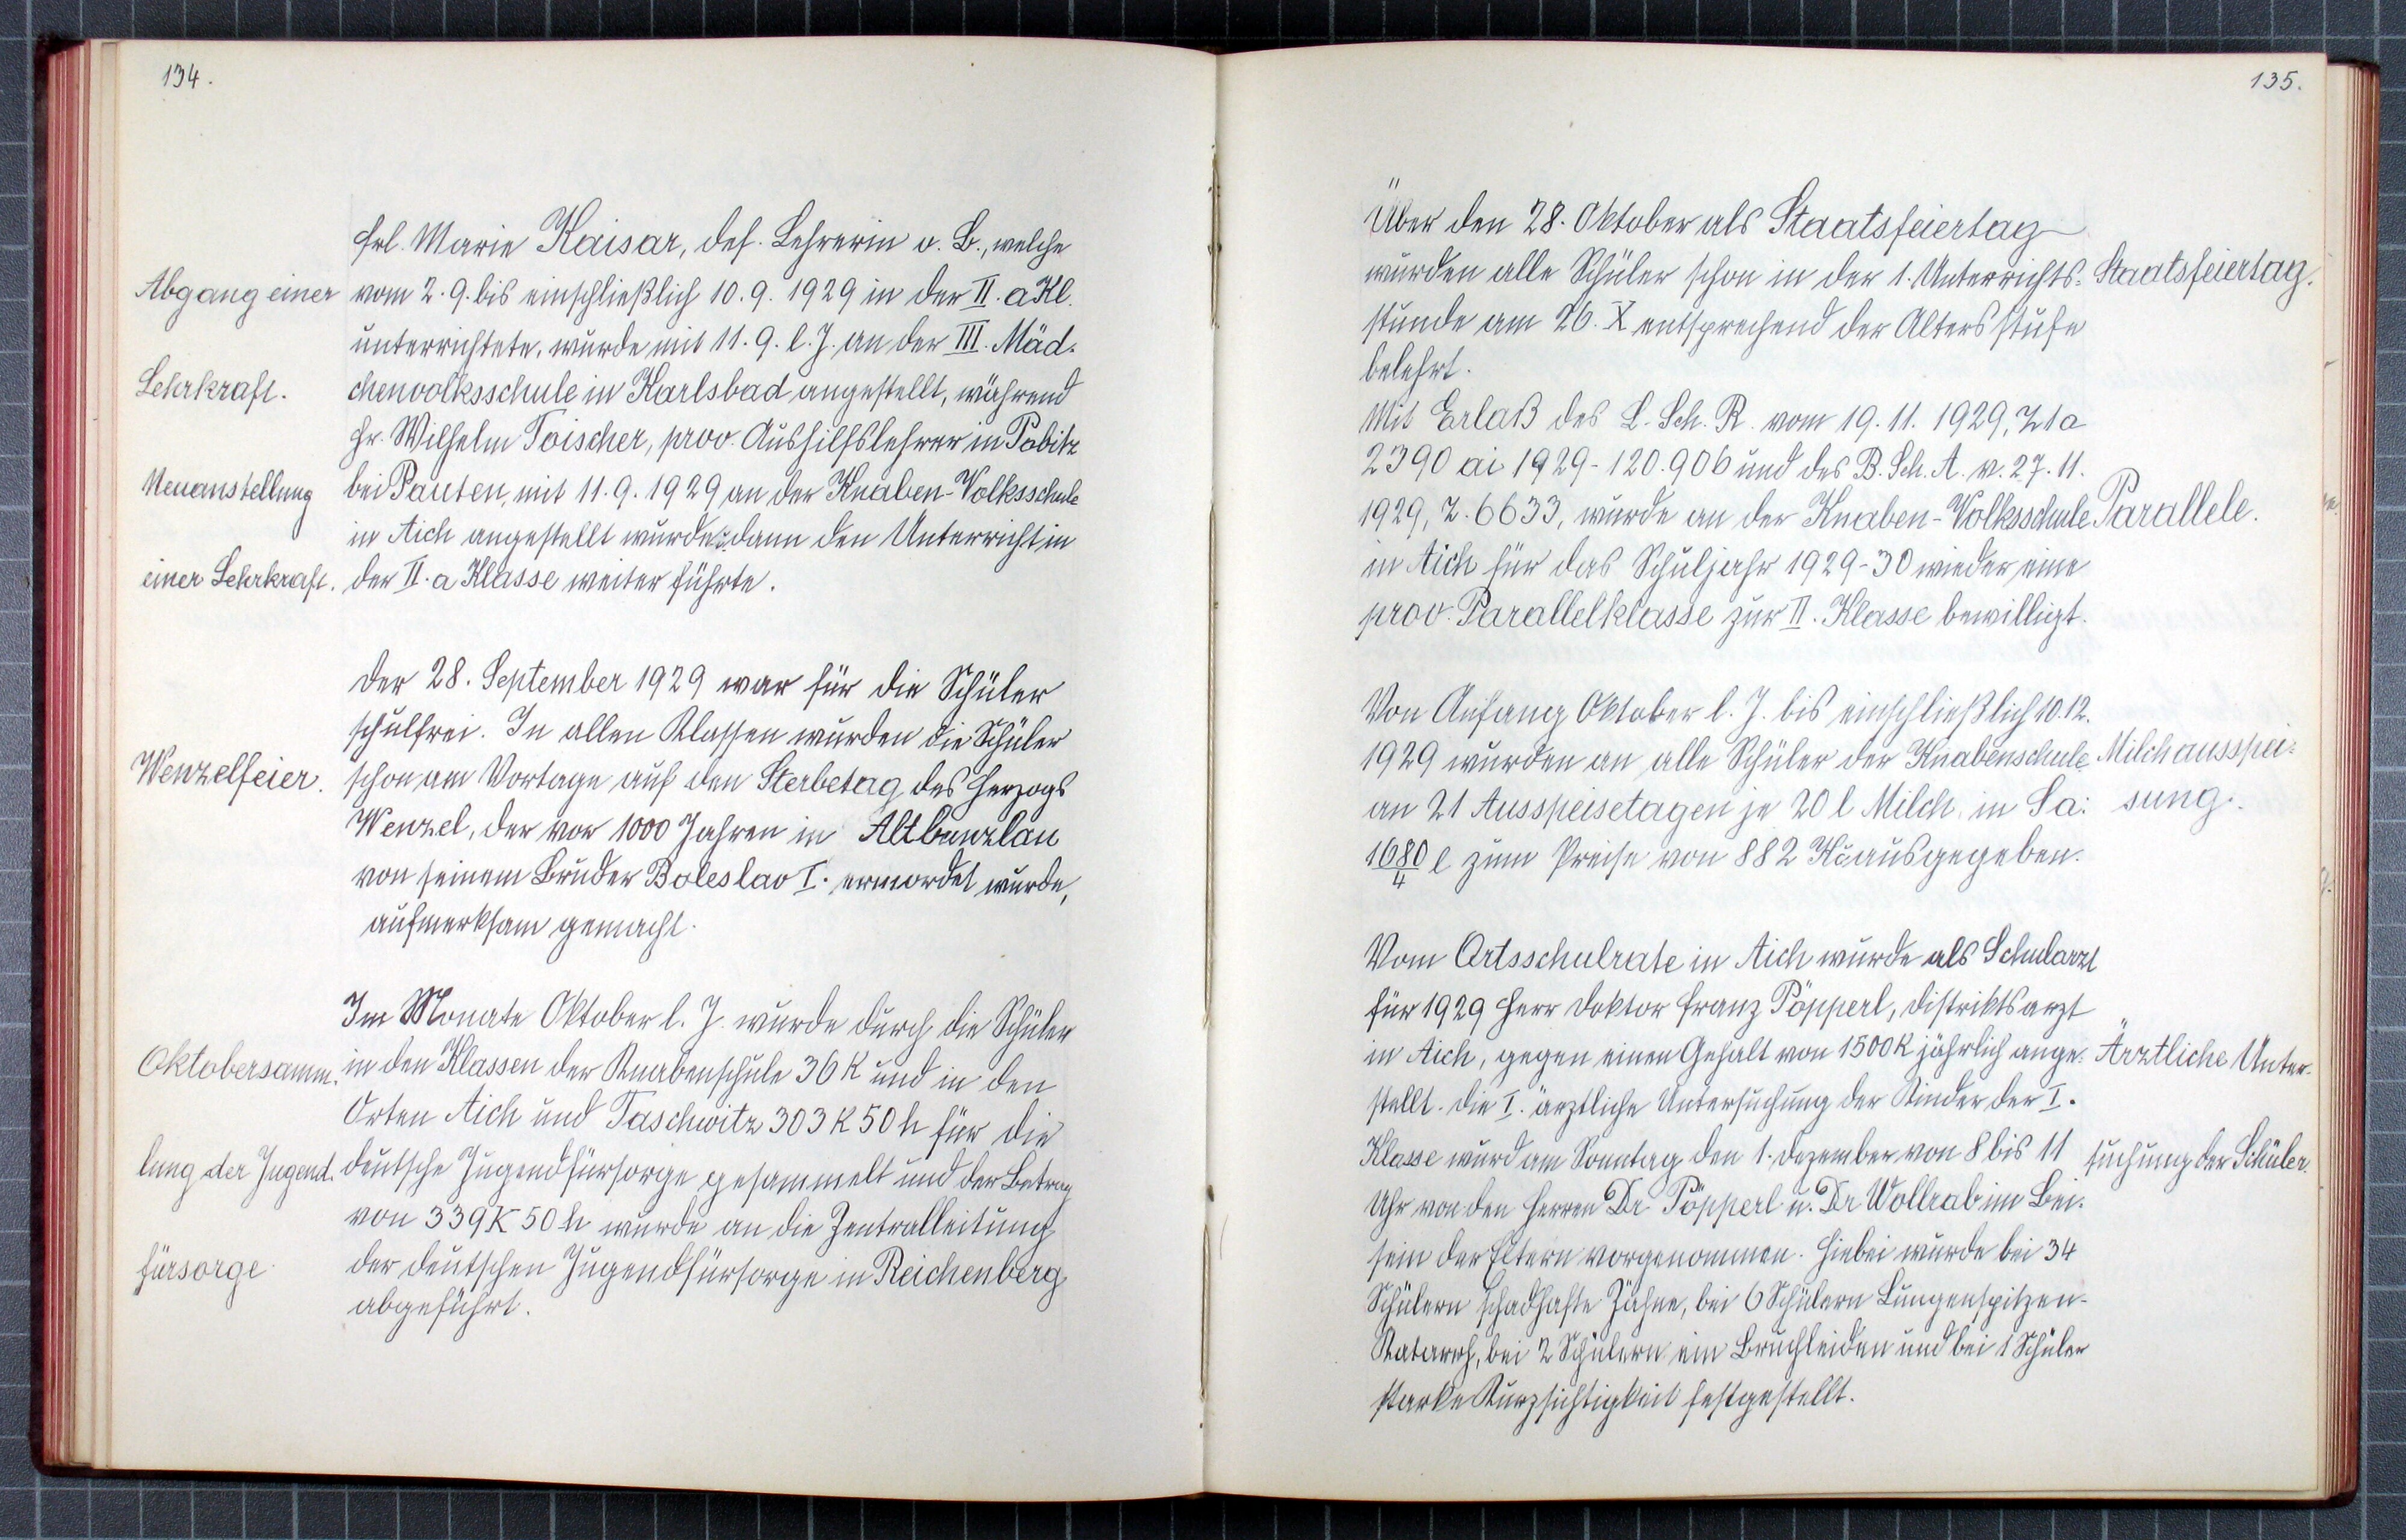 134.
Frl. Marie Kaisar, def. Lehrerin o. B., welche
Abgang einer
vom 2.9. bis einschließlich 10.9. 1929 in der II. a Kl.
unterrichtete, wurde mit 11.9. l. J. an der III. Mäd-
Lehrkraft.
chenvolksschule in Karlsbad angestellt, während
Hr. Wilhelm Toischer, prov. Aushilfslehrer in Pobitz
Neuanstellung
bei Pauten, mit 11.9.1929 an der Knaben-Volksschule
in Aich angestellt wurde u. dann den Unterricht in
einer Lehrkraft.
der II. a Klasse weiter führte.
Der 28. September 1929 war für die Schüler
schulfrei. In allen Klassen wurden die Schüler
Wenzelfeier.
schon am Vortage auf den Sterbetag des Herzogs
Wenzel, der vor 1000 Jahren in Altbunzlau
von seinem Bruder Boleslav I. ermordet wurde,
aufmerksam gemacht.
Im Monate Oktober l. J. wurde durch die Schüler
Oktobersamm-
in den Klassen der Knabenschule 36 K und in den
Orten Aich und Taschwitz 303 K 50 h für die
lung der Jugend-
deutsche Jugendfürsorge gesammelt und der Betrag
von 339 K 50 h wurde an die Zentralleitung
fürsorge
der deutschen Jugendfürsorge in Reichenberg
abgeführt.
135.
Über den 28. Oktober als Staatsfeiertag
wurden alle Schüler schon in der 1. Unterrichts-
Staatsfeiertag.
stunde am 26. X entsprechend der Altersstufe
belehrt.
Mit Erlaß des L. Sch. R. vom 19.11. 1929, Z 1a
2390 ai 1929-120.906 und des B. Sch. A. v. 27.11.
1929, Z. 6633, wurde an der Knaben-Volksschule
Parallele.
in Aich für das Schuljahr 1929-30 wieder eine
prov. Parallelklasse zur II. Klasse bewilligt.
Von Anfang Oktober l. J. bis einschließlich 10.12.
1929 wurden an alle Schüler der Knabenschule
Milchausspei-
an 21 Ausspeisetagen je 20 l Milch, in Sa:
sung.
1680/4 l zum Preise von 882 Kč ausgegeben.
Vom Ortsschulrate in Aich wurde als Schularzt
für 1929 Herr Doktor Franz Pöpperl, Distriktsarzt
in Aich, gegen einen Gehalt von 1500 K jährlich ange-
Ärztliche Unter-
stellt. Die I. ärztliche Untersuchung der Kinder der I.
Klasse wurd am Sonntag den 1. Dezember von 8 bis 11
suchung der Schüler.
Uhr von den Herren Dr Pöpperl u. Dr Wollrab im Bei-
sein der Eltern vorgenommen. Hiebei wurde bei 34
Schülern schadhafte Zähne, bei 6 Schülern Lungenspitzen-
Katarrh, bei 2 Schülern ein Bruchleiden und bei 1 Schüler
starke Kurzsichtigkeit festgestellt.